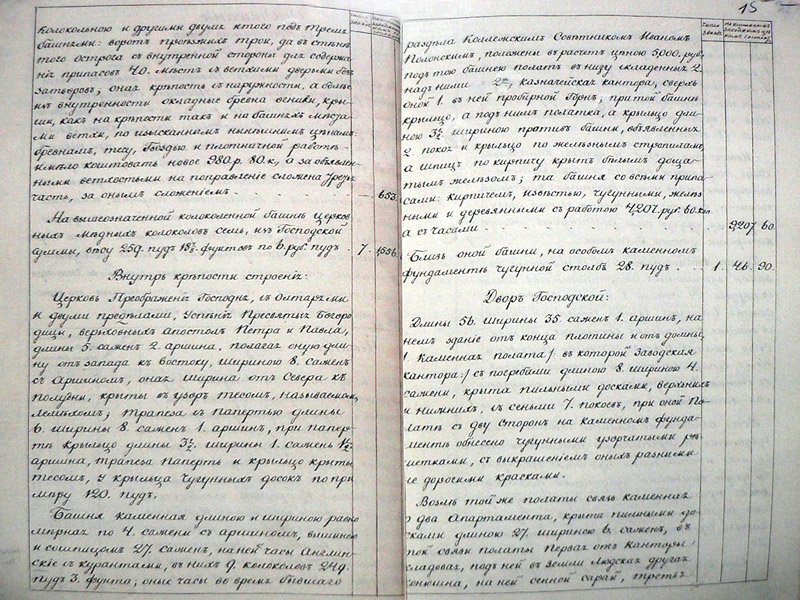 колокольною и другими двумя итого подъ тремя
башнями: воротъ проѣзжихъ трои, да въ стѣнѣ
того острога съ внутренной стороны для содержа
нія припасовъ 40. мѣстъ съ ветхими дверьми безъ
затворовъ; оная крѣпость съ наружности, а болѣе
въ внутренности окладныя бревна
ши, какъ на крѣпости такъ и на башняхъ мѣста
ми ветхи, по изысканнымъ нынѣшнимъ цѣнамъ
бревнамъ, тесу, гвоздью и плотничной работѣ
имѣло коштовать новое 980.р. 80.к., а за объявлен
ными ветхостьми на поправленіе сложена третья
часть, за онымъ сложеніемъ 653.
На вышеозначенной колоколенной башнѣ церков
ныхъ мѣдныхъ колоколовъ семь, изъ Господской
суммы, вѣсу 259. пудъ 18½ фунтовъ по 6. руб. пудъ 7. 1556.
Внутрь крѣпости строеніе:
Церковь Преображенія Господня, съ олтарями
и двумя предѣлами, Успенія Пресвятыя Богоро
дицы, верховныхъ апостолъ Петра и Павла,
длины 5. саженъ 2. аршина, полагая оную дли
ну отъ запада къ востоку, ширины 8. саженъ
съ аршиномъ, оная ширина отъ Севера къ
полудни, крыты въ узоръ тесомъ, называемомъ
лемехомъ; трапеза съ папертью длины
6. ширины 8 саженъ 1. аршинъ, при папер
тѣ крыльцо длины 3½ ширины 1. саженъ 1½
аршина, трапеза паперть и крыльцо крыты
тесомъ, у крыльца чугунныхъ досокъ по при
мѣру 120. пудъ.
Башня каменная длиною и шириною равно
мѣрная по 4. сажени съ аршиномъ, вышиною
и сошпицомъ 27. саженъ, на ней часы Англин
скіе съ курантами, въ нихъ 9. колоколовъ 249.
пудъ 3. фунта; оные часы во время бывшаго
15
раздѣла Коллежскимъ Совѣтникомъ Иваномъ
положены въ расчетъ цѣною 5000. руб.
подъ тою башнею полатъ въ низу складенныхъ 2.
надъ ними 2., казначейская кантора, сверхъ
оной 1. въ ней пробирной горнъ; при той башнѣ
крыльцо, а подъ нимъ полатка, а крыльцо дли
ною 3½ шириною противъ башни, объявленныхъ
2. покоя и крыльцо по желѣзнымъ стропиламъ,
а шпицъ по кирпичу крытъ бѣлымъ дощa
тымъ желѣзомъ; та башня со всѣми припа
сами: кирпичемъ, известью, чугунными, желѣз
ными и деревянными съ работою 4207. руб. 60. коп.
а съ часами 9207. 60.
Близь оной башни, на особомъ каменномъ
фундаментѣ чугунной столбъ 28. пудъ 1. 46. 90.
Дворъ Господской:
Длины 56. ширины 35. саженъ 1. аршинъ, на
немъ зданіе отъ конца плотины и отъ домны,
1. Каменная полата / въ которой Заводская
кантора / съ погребами длиною 8. шириною 4.
сажени, крыта пильными досками, верхнихъ
и нижнихъ, съ сеньми 7. покоевъ, при оной по
латѣ съ дву сторонъ на каменномъ фунда
ментѣ обнесено чугунными узорчатыми рѣ
шетками, съ выкрашеніемъ оныхъ разными
не дорогими красками.
Возлѣ той же полаты связь каменная
о два Апартамента, крыта пильными до
сками длиною 27. шириною 6. саженъ, въ
той связи полаты первая отъ Канторы
кладовая, подъ ней въ земли людская другая
конюшня, на ней сенной сарай, третья